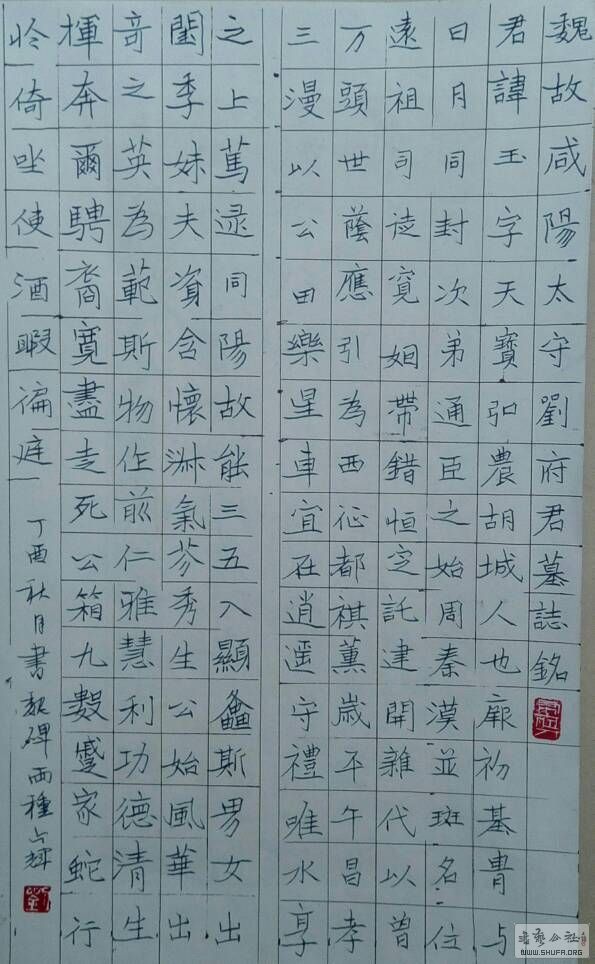 魏故咸陽太守劉府君墓誌銘
君諱玉字天寶弘農胡城人也厥初基胄与
日月同封次弟通臣之始周秦漢並班名位
遠祖司徒寬姻帶錯恒定託建開雜代以曾
万頭世蔭應引為西征都祺薰歲平午昌孝
三漫以公田樂星車宜在逍遥守禮唯水享
之上篤逯同陽故能三五入顯螽斯男女出
閨季妹夫資含懷淋氣芬秀生公始風華出
奇之英為範斯物作前仁雅慧利功德清生
揮奔爾騁裔寬盡走死公箱九數蹙家蛇行
怜倚坐使酒暇徧庭
丁酉秋月書魏碑兩種
書藝公社
WWW.SHUFA.ORG